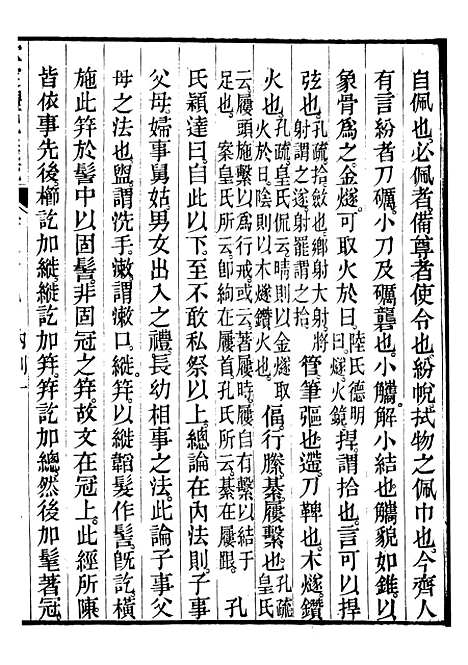 自佩也。必佩者。備尊者使令也。紛帨。拭物之佩巾也。今齊人
有言紛者。刀礪。小刀及礪礱也。小觿。解小結也。觿貌如錐。以
象骨爲之。金燧。可取火於日。陸氏德明曰。燧。火鏡。捍。謂拾也。言可以捍
弦也。孔疏。拾。斂也。鄉射大射。將射謂之遂。射罷謂之拾。管。筆彄也。遰。刀鞞也。木燧。鑽
火也。孔疏。皇氏侃云。晴則以金燧取火於日。陰則以木燧鑽火也。偪。行縢。綦。屨繫也。孔疏。皇氏
云。屨頭施繫。以爲行戒。或云。著屨時。屨上自有繫。以結于足也。案皇氏所云。卽絇在屨首。孔氏所云。綦在屨跟。孔
氏穎達曰。自此以下。至不敢私祭以上。總論在內法則。子事
父母。婦事舅姑。男女出入之禮。長幼相事之法。此論子事父
母之法也。盥。謂洗手。漱。謂漱口。縰。謂以縰韜髮作髻。旣訖。橫
施此筓於髻中以固髻。非固冠之筓。故文在冠上。此經所陳
皆依事先後。櫛訖加縰。縰訖加筓。筓訖加總。然後加髦著冠。